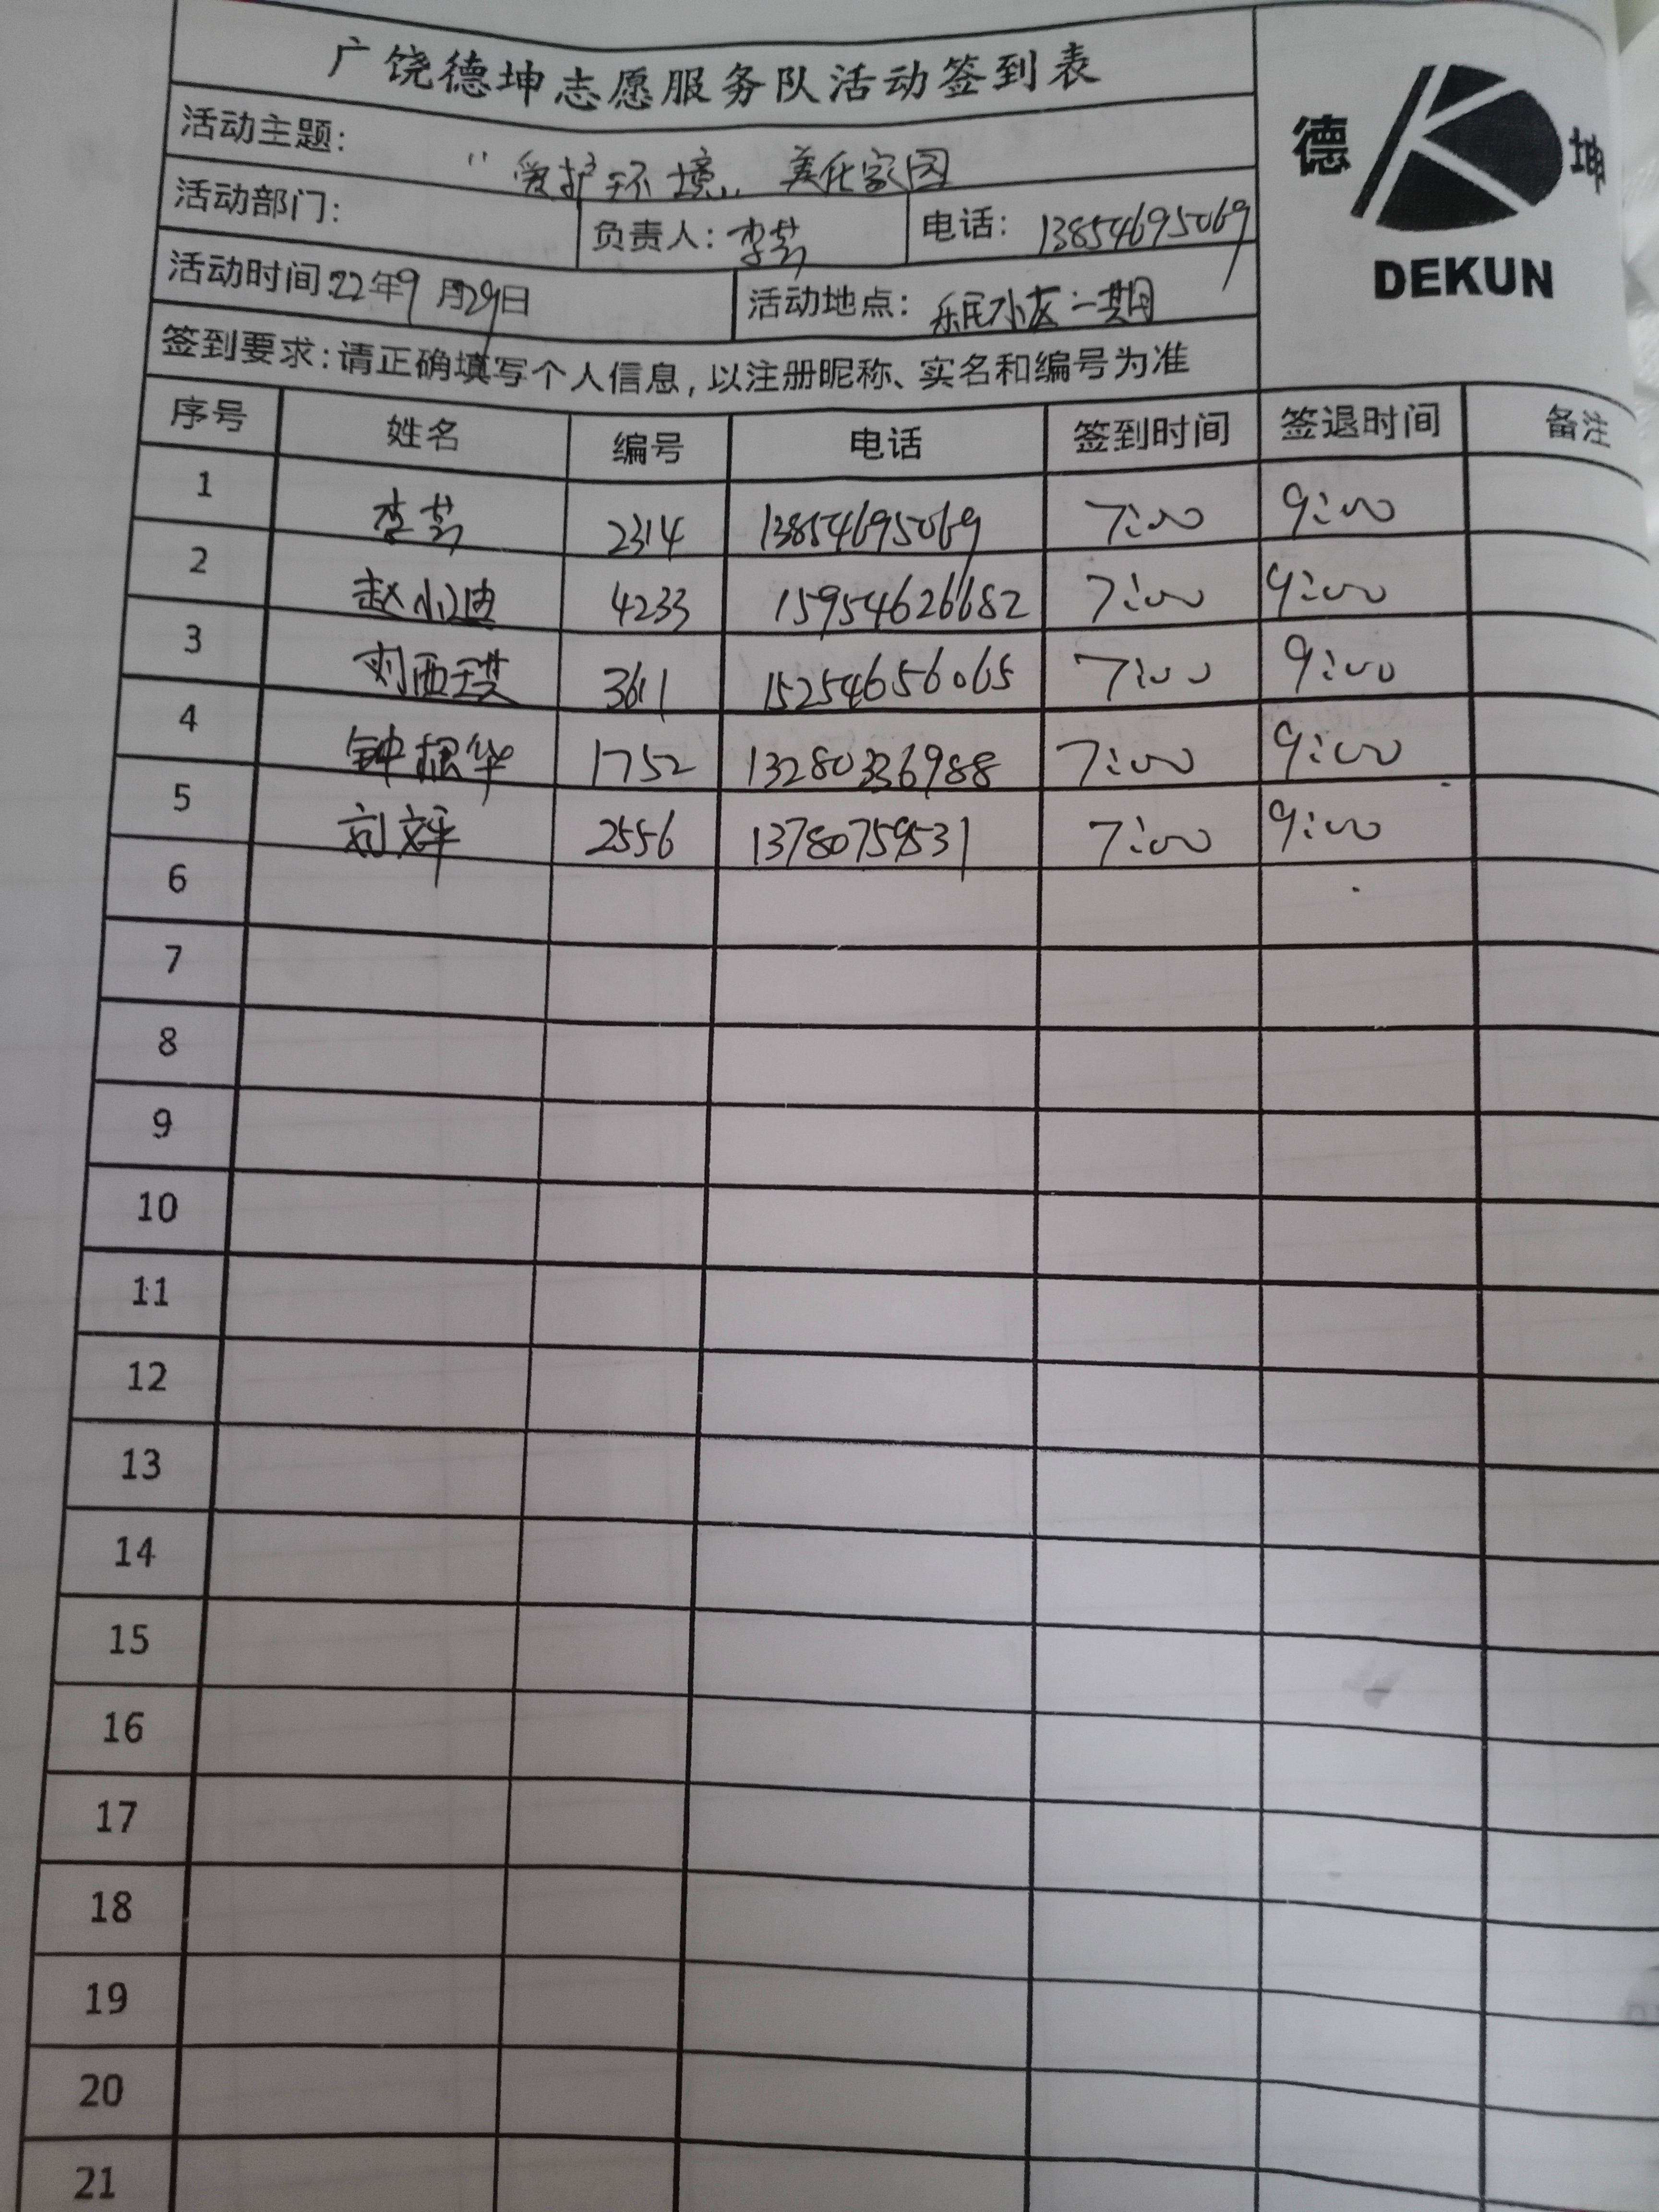 广饶德坤志愿服务队活动签到表
德 坤
DEKUN
活动主题: "爱护环境,, 美化家园
活动部门: 负责人: 李芸 电话: 13854695069
活动时间:22年9月29日 活动地点: 乐民小区二期
签到要求:请正确填写个人信息,以注册昵称、实名和编号为准
序号 姓名 编号 电话 签到时间 签退时间 备注
1 李芸 2314 13854695069 7:00 9:00
2 赵小迪 4233 15954626682 7:00 9:00
3 刘西瑛 3611 15254656065 7:00 9:00
4 钟根华 1752 13280336988 7:00 9:00
5 刘文平 2556 13780759531 7:00 9:00
6
7
8
9
10
11
12
13
14
15
16
17
18
19
20
21